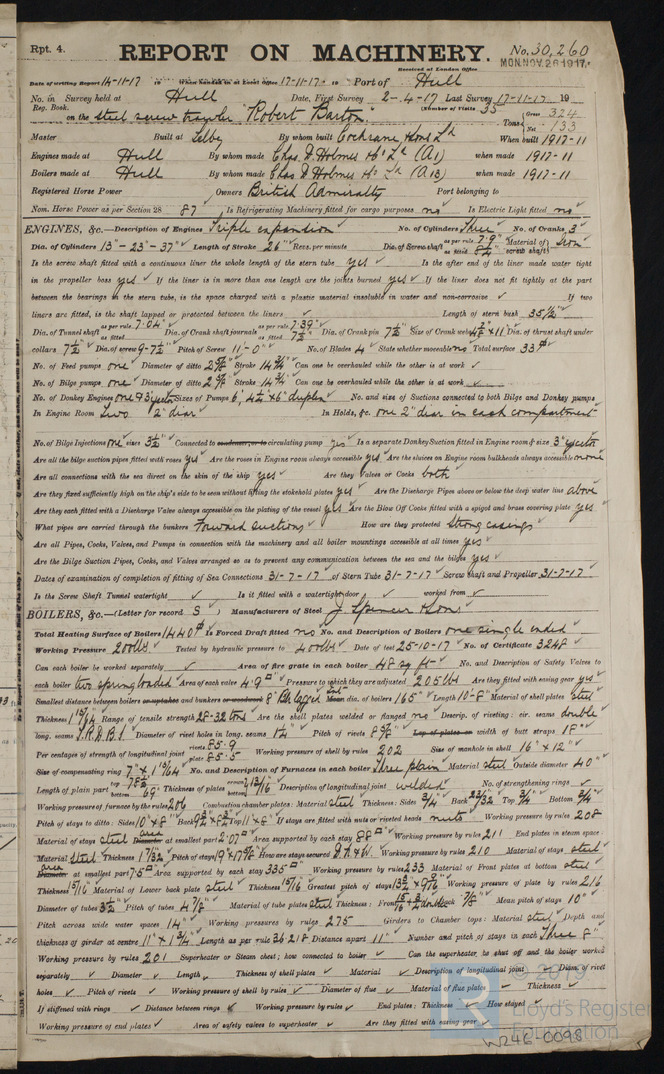 Rpt. 4. REPORT ON MACHINERY. No. 30,260
Received at London Office MON. NOV. 26 1917
Date of writing Report 14-11-17 19 When handed in at Local Office 17-11-17 19 Port of Hull
No. in Survey held at Hull Date, First Survey 2-4-17 Last Survey 17-11-17 19
Reg. Book. (Number of Visits 35
on the steel screw trawler "Robert Barton" Tons Gross 324 Net 133
Master Built at Selby By whom built Cochrane & Sons Ld When built 1917-11
Engines made at Hull By whom made Chas D Holmes & Co Ld (A1) when made 1917-11
Boilers made at Hull By whom made Chas D Holmes & Co Ld (A13) when made 1917-11
Registered Horse Power Owners British Admiralty Port belonging to
Nom. Horse Power as per Section 28 87 Is Refrigerating Machinery fitted for cargo purposes no Is Electric Light fitted no
ENGINES, &c.—Description of Engines Triple expansion No. of Cylinders Three No. of Cranks 3
Dia. of Cylinders 13"-23"-37" Length of Stroke 26" Revs. per minute Dia. of Screw shaft as per rule 7.9" as fitted 8¼" Material of screw shaft Iron
Is the screw shaft fitted with a continuous liner the whole length of the stern tube yes Is the after end of the liner made water tight
in the propeller boss yes If the liner is in more than one length are the joints burned yes If the liner does not fit tightly at the part
between the bearings in the stern tube, is the space charged with a plastic material insoluble in water and non-corrosive ✓ If two
liners are fitted, is the shaft lapped or protected between the liners ✓ Length of stern bush 35½"
Dia. of Tunnel shaft as per rule 7.04" as fitted Dia. of Crank shaft journals as per rule 7.39" as fitted 7½" Dia. of Crank pin 7½" Size of Crank webs Dia. of thrust shaft under
collars 7½" Dia. of screw 9-7½" Pitch of Screw 11'-0" No. of Blades 4 State whether moveable no Total surface 33
No. of Feed pumps one Diameter of ditto Stroke 14¾" Can one be overhauled while the other is at work ✓
No. of Bilge pumps one Diameter of ditto Stroke 14¾" Can one be overhauled while the other is at work ✓
No. of Donkey Engines one & 3" ejector Sizes of Pumps 6", 4½" x 6" duplex No. and size of Suctions connected to both Bilge and Donkey pumps
In Engine Room Two 2" diar In Holds, &c. one 2" diar in each compartment
No. of Bilge Injections one sizes 3½" Connected to condenser, or to circulating pump yes Is a separate Donkey Suction fitted in Engine room & size 3" ejector
Are all the bilge suction pipes fitted with roses yes Are the roses in Engine room always accessible yes Are the sluices on Engine room bulkheads always accessible none
Are all connections with the sea direct on the skin of the ship yes Are they Valves or Cocks both
Are they fixed sufficiently high on the ship's side to be seen without lifting the stokehold plates yes Are the Discharge Pipes above or below the deep water line above
Are they each fitted with a Discharge Valve always accessible on the plating of the vessel yes Are the Blow Off Cocks fitted with a spigot and brass covering plate yes
What pipes are carried through the bunkers Forward suctions How are they protected Strong casings
Are all Pipes, Cocks, Valves, and Pumps in connection with the machinery and all boiler mountings accessible at all times yes
Are the Bilge Suction Pipes, Cocks, and Valves arranged so as to prevent any communication between the sea and the bilges yes
Dates of examination of completion of fitting of Sea Connections 31-7-17 of Stern Tube 31-7-17 Screw shaft and Propeller 31-7-17
Is the Screw Shaft Tunnel watertight ✓ Is it fitted with a watertight door ✓ worked from ✓
BOILERS, &c.—(Letter for record S) Manufacturers of Steel J. Spencer & Sons
Total Heating Surface of Boilers 1440 Is Forced Draft fitted no No. and Description of Boilers one single ended
Working Pressure 200 lbs Tested by hydraulic pressure to 400 lbs Date of test 25-10-17 No. of Certificate 3248
Can each boiler be worked separately ✓ Area of fire grate in each boiler 48 sq ft No. and Description of Safety Valves to
each boiler two spring loaded Area of each valve 4.9 Pressure to which they are adjusted 205 lbs Are they fitted with easing gear yes
Smallest distance between boilers or uptakes and bunkers or woodwork 8" dia. of boilers 165" Length 10-8" Material of shell plates steel
Thickness Range of tensile strength 28-32 tons Are the shell plates welded or flanged no Descrip. of riveting: cir. seams double
long. seams T.R.D.B.S. Diameter of rivet holes in long. seams Pitch of rivets Lap of plates or width of butt straps 18"
Per centages of strength of longitudinal joint rivets 85.9 plate 85.5 Working pressure of shell by rules 202 Size of manhole in shell 16" x 12"
Size of compensating ring No. and Description of Furnaces in each boiler Three plain Material steel Outside diameter 40"
Length of plain part top 78½" bottom 69" Thickness of plates crown bottom Description of longitudinal joint welded No. of strengthening rings ✓
Working pressure of furnace by the rules 206 Combustion chamber plates: Material steel Thickness: Sides ¾" Back 23/32" Top ¾" Bottom ¾"
Pitch of stays to ditto: Sides 10" x 8" Back Top 11" x 8" If stays are fitted with nuts or riveted heads nuts Working pressure by rules 208
Material of stays steel area Diameter at smallest part 2.07 Area supported by each stay 88 Working pressure by rules 211 End plates in steam space
Material steel Thickness 1 7/32" Pitch of stays How are stays secured Working pressure by rules 210 Material of stays steel
area Diameter at smallest part 7.5 Area supported by each stay 335 Working pressure by rules 233 Material of Front plates at bottom steel
Thickness 15/16" Material of Lower back plate steel Thickness 15/16" Greatest pitch of stays Working pressure of plate by rules 216
Diameter of tubes 3½" Pitch of tubes 4⅞" Material of tube plates steel Thickness: Front Back ⅞" Mean pitch of stays 10"
Pitch across wide water spaces 14" Working pressures by rules 275 Girders to Chamber tops: Material steel Depth and
thickness of girder at centre 11" x 1¾" Length as per rule Distance apart 11" Number and pitch of stays in each Three 8"
Working pressure by rules 201 Superheater or Steam chest; how connected to boiler ✓ Can the superheater be shut off and the boiler worked
separately ✓ Diameter ✓ Length ✓ Thickness of shell plates ✓ Material ✓ Description of longitudinal joint ✓ Diam. of rivet
holes ✓ Pitch of rivets ✓ Working pressure of shell by rules ✓ Diameter of flue ✓ Material of flue plates ✓ Thickness ✓
If stiffened with rings ✓ Distance between rings ✓ Working pressure by rules ✓ End plates: Thickness ✓ How stayed ✓
Working pressure of end plates ✓ Area of safety valves to superheater ✓ Are they fitted with easing gear ✓
© 2019
Lloyd's Register
Foundation
W246-0098